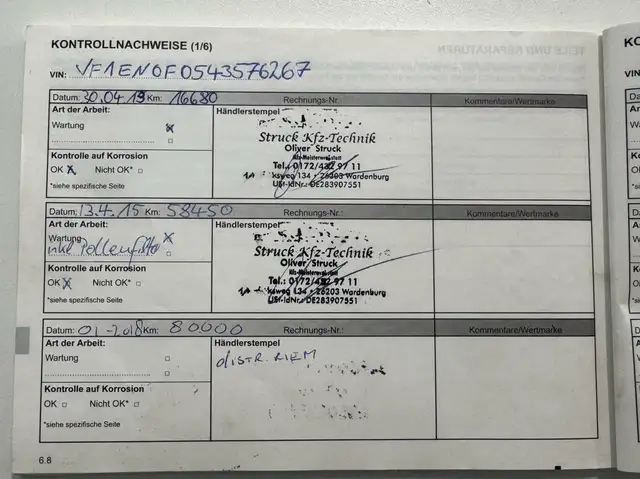 KONTROLLNACHWEISE (1/6)
VIN: VF1EN0F0543576267
Datum: 30.04.13 Km: 16680 Rechnungs-Nr. Kommentare/Wertmarke
Art der Arbeit: Händlerstempel
Wartung x
Struck Kfz-Technik
Oliver Struck
Kfz-Meisterwerkstatt
Kontrolle auf Korrosion
Tel.: 0172/432 97 11
OK x Nicht OK*
ksweg 134 • 26203 Wardenburg
*siehe spezifische Seite
USt-IdNr.: DE283907551
Datum: 13.4.15 Km: 58450 Rechnungs-Nr.: Kommentare/Wertmarke
Art der Arbeit Händlerstempel
Wartung x
inkl Pollenfilter
Struck Kfz-Technik
Oliver Struck
Kfz-Meisterwerkstatt
Kontrolle auf Korrosion
Tel.: 0172/432 97 11
OK x Nicht OK*
ksweg 134 • 26203 Wardenburg
*siehe spezifische Seite
USt-IdNr.: DE283907551
Datum: 01-2018 Km: 80000 Rechnungs-Nr.: Kommentare/Wertmarke
Art der Arbeit Händlerstempel
Wartung
RIEM
Kontrolle auf Korrosion
OK Nicht OK*
*siehe spezifische Seite
6.8
KO
VIN
Da